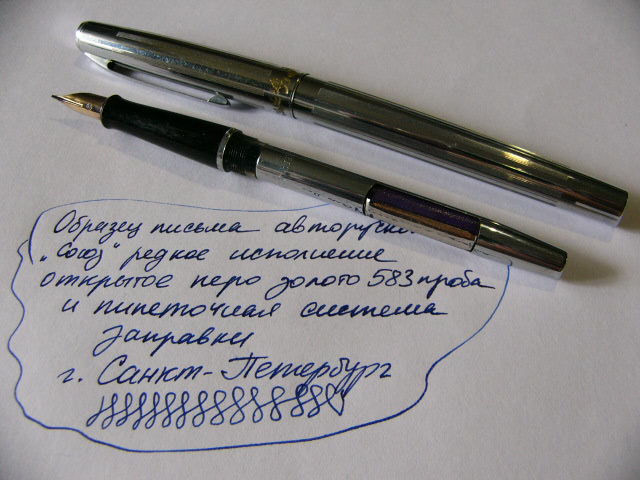 Образец письма авторучки
„Союз" редкое исполнение
открытое перо золото 583 проба
и пипеточная система
заправки
г. Санкт-Петербург